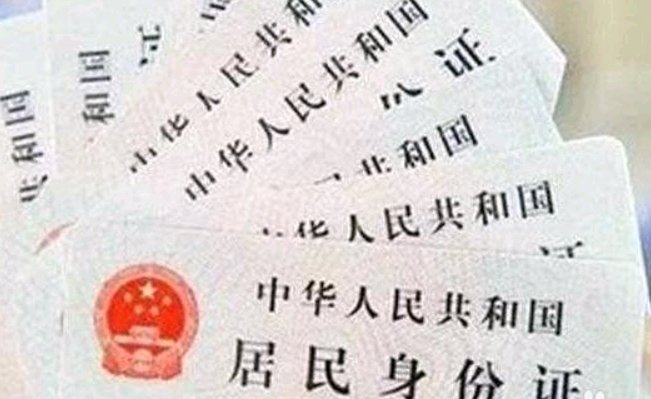 共和国
和国
证
中华人民共和
中华人民共和国
份证
共和国
华人民共和国
证
中华人民共和国
居民身份证